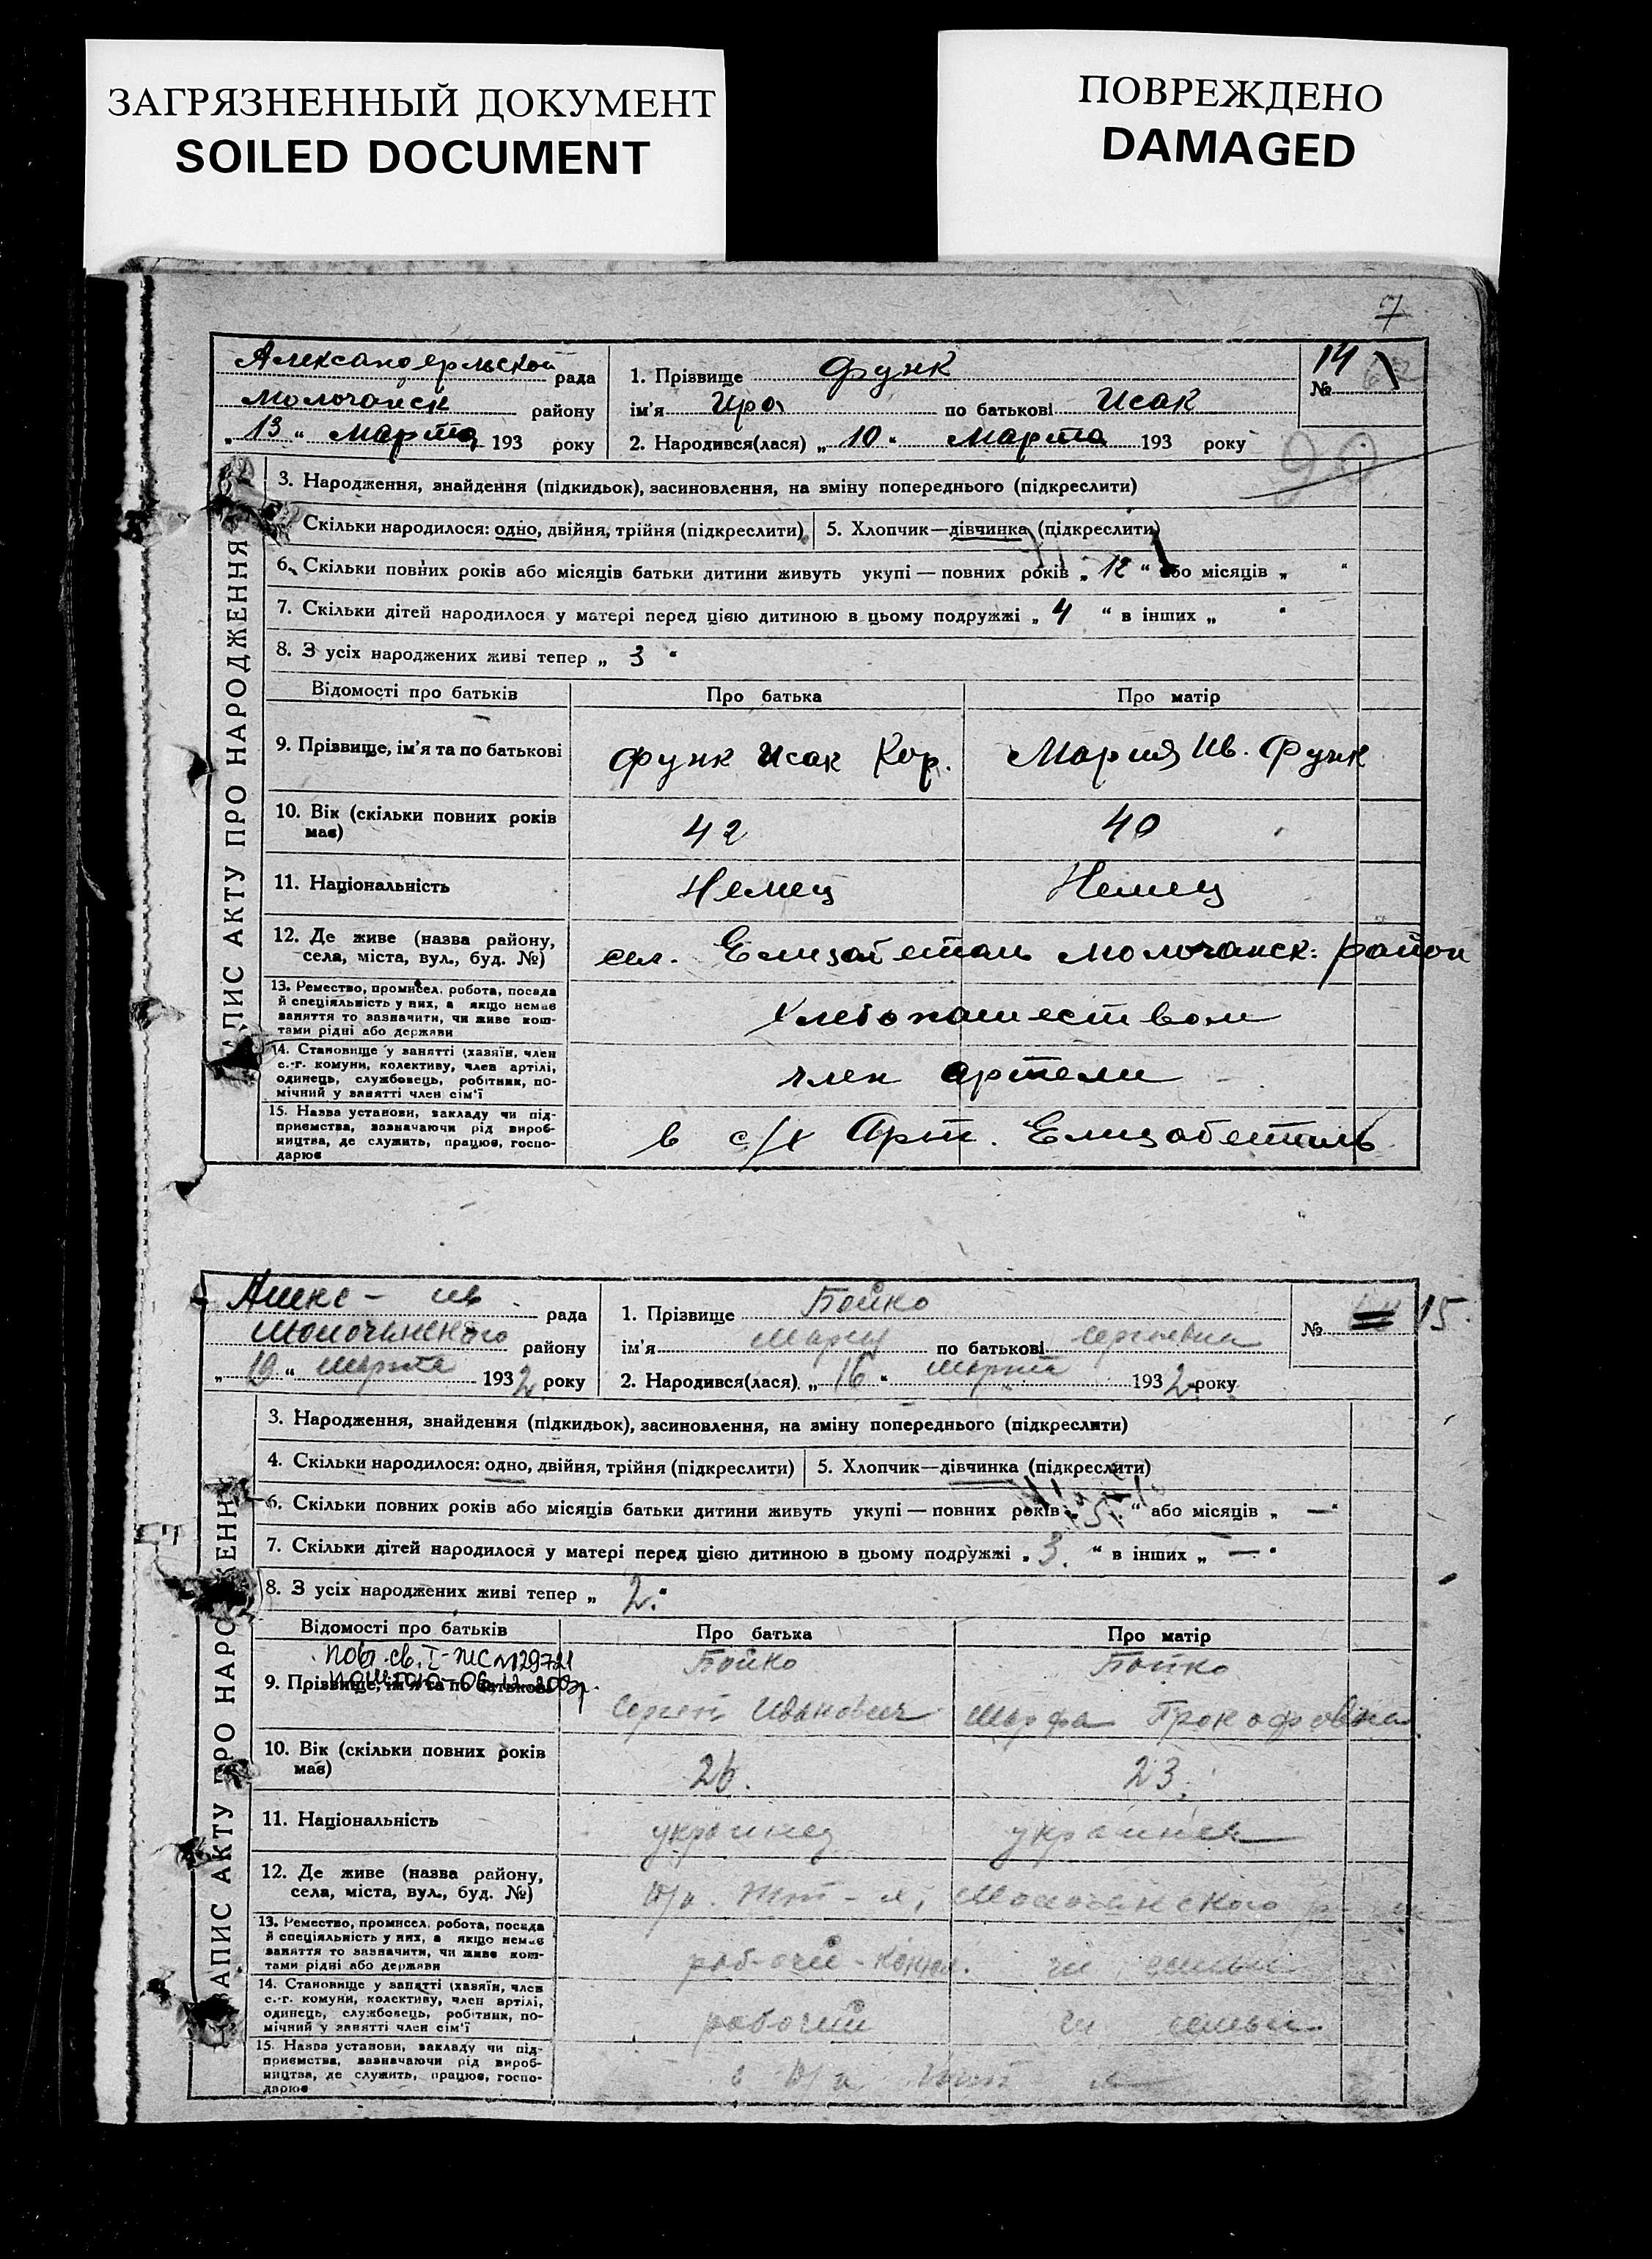 ЗАГРЯЗНЕННЫЙ ДОКУМЕНТ
SOILED DOCUMENT
ПОВРЕЖДЕНО
DAMAGED
7
рада
Молочанск району
„ 13 “ Марта 193 року
1. Прізвище Функ
ім'я Ира по батькові Исак
2. Народився(лася) „ 10 “ Марта 193 року
14
№
90
АПИС АКТУ ПРО НАРОДЖЕННЯ
3. Народження, знайдення (підкидьок), засиновлення, на зміну попереднього (підкреслити)
Скільки народилося: одно, двійня, трійня (підкреслити)
5. Хлопчик—дівчинка (підкреслити)
6. Скільки повних років або місяців батьки дитини живуть укупі — повних років „ 12 “ або місяців „ “
7. Скільки дітей народилося у матері перед цією дитиною в цьому подружжі „ 4 “ в інших „ “
8. З усіх народжених живі тепер „ 3 “
Відомості про батьків
Про батька
Про матір
9. Прізвище, ім'я та по батькові
Функ Исак Кор.
Мария Ив. Функ
10. Вік (скільки повних років
має)
42
40
11. Національність
Немец
Немец
12. Де живе (назва району,
села, міста, вул., буд. №)
сел. Елизабеталь Молочанск: район
13. Ремество, промисел, робота, посада
й спеціяльність у них, а якщо немає
заняття то зазначити, чи живе кош-
тами рідні або держави
хлебопашеством
14. Становище у занятті (хазяїн, член
с.-г. комуни, колективу, член артілі,
одинець, службовець, робітник, по-
мічний у занятті член сім'ї
член артели
15. Назва установи, закладу чи під-
приємства, зазначаючи рід вироб-
ництва, де служить, працює, госпо-
дарює
в с/х Арт. Елизабеталь
рада
Молочанского району
„ “ марта 1932 року
1. Прізвище Бойко
ім'я Мария по батькові Сергеевна
2. Народився(лася) „ 16 “ марта 1932 року
№ 15.
АПИС АКТУ ПРО НАРО ЕНН
3. Народження, знайдення (підкидьок), засиновлення, на зміну попереднього (підкреслити)
4. Скільки народилося: одно, двійня, трійня (підкреслити)
5. Хлопчик—дівчинка (підкреслити)
6. Скільки повних років або місяців батьки дитини живуть укупі — повних років „ 5 “ або місяців „ — “
7. Скільки дітей народилося у матері перед цією дитиною в цьому подружжі „ 3. “ в інших „ — “
8. З усіх народжених живі тепер „ 2. “
Відомості про батьків
Про батька
Про матір
пов. св. I-ЖС №129721
9. Прізвище, ім'я та по батькові
Бойко
Сергей Иванович
Бойко
Марфа Прокофовна
10. Вік (скільки повних років
має)
26.
23.
11. Національність
украинец
украинка
12. Де живе (назва району,
села, міста, вул., буд. №)
Молочанского
13. Ремество, промисел, робота, посада
й спеціяльність у них, а якщо немає
заняття то зазначити, чи живе кош-
тами рідні або держави
чл семьи
14. Становище у занятті (хазяїн, член
с.-г. комуни, колективу, член артілі,
одинець, службовець, робітник, по-
мічний у занятті член сім'ї
рабочий
чл семьи
15. Назва установи, закладу чи під-
приємства, зазначаючи рід вироб-
ництва, де служить, працює, госпо-
дарює